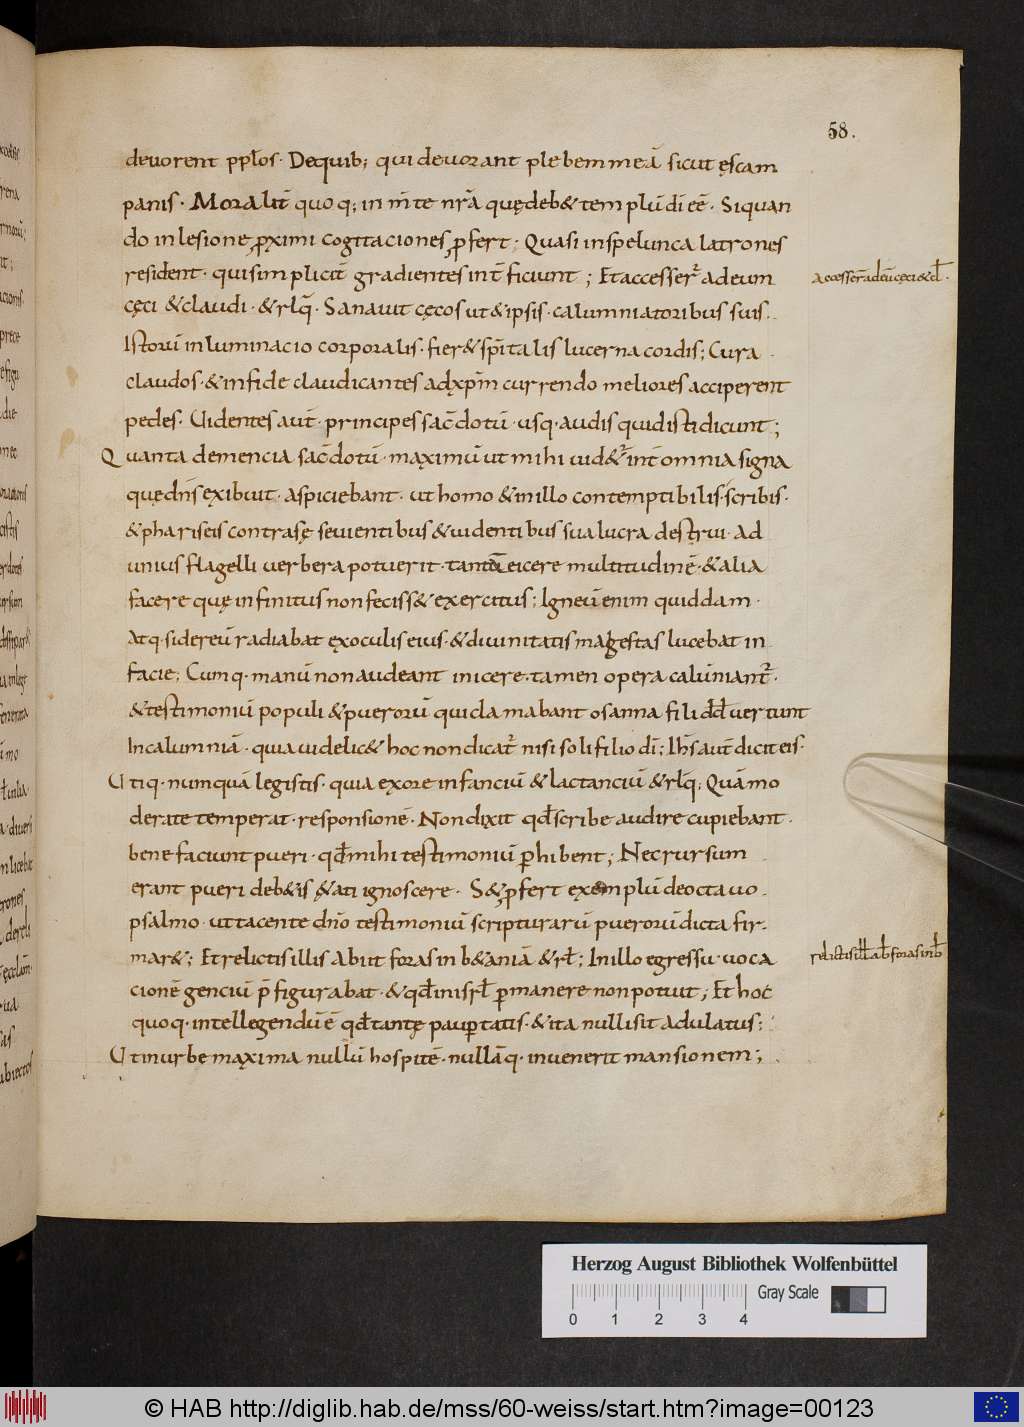 58.
devorent pplos· Dequib; qui devorant plebem meā sicut ęscam
panis· Moralit̄ quoq; in m̄te nr̄ā quędeb& templū dī eē· Siquan
do inlesione, p̱ximi cogitaciones p̱fert; Quasi inspelunca latrones
resident· quisimplicit̄ gradientes int̄ficiunt; Etaccesser̄ adeum
Accesser̄ adeū cęci & cl̄·
cęci &claudi·&rlq̄· Sanavit cęcos ut&ipsis· calumniatoribus suis·
Istorū inluminacio corporalis· fier& sp̄italis lucerna cordis; Cura
claudos·&infide claudicantes adxp̄m currendo meliores acciperent
pedes· Uidentes aut̄· principes sac̄dotū· usq· audis quid isti dicunt;
Quanta demencia sac̄dotū· maximū ut mihi uid&r̄ int̄ omnia signa
quę dn̄s exibuit· aspiciebant· ut homo &inillo contemptibilis· scribis·
&phariseis contra sę sevientibus &uidentibus sua lucra destrui· ad
unius flagelli verbera potuerit· tantā eicere multitudinē·&alia
facere quę infinitus nonfeciss& exercitus; Igneū enim quiddam·
Atq· sidereū radiabat exoculis eius·&divinitatis magestas lucebat in
facie; Cumq· manū non audeant inicere· tamen opera calūniant̄·
&testimoniū populi &puerorū quiclamabant osanna fili dd̄ vertunt
Incalumniā· quia uidelic& hoc non dicat̄ nisi soli filio dī; Ih̄s aut̄ dicit eis·
Utiq· numquā legistis· quia exore infanciū &lactanciū &rlq̄; Quā mo
derate temperat· responsionē· Nondixit qd̄ scribe audire cupiebant·
bene faciunt pueri· qd̄ mihi testimoniū p̱hibent; Nec rursum
erant pueri deb&is ętati ignoscere· S& p̱fert exemplū deoctavo
psalmo· ut tacente dn̄o testimoniū scripturarū puerorū dicta fir-
mar&; Et relictis illis abiit foras in b&aniā &rł; Inillo egressu· voca
relictis illꝉ ab foras in b̄
cionē genciū p̄figurabat·&qd̄ inisrł p̱manere non potuit; Et hoc
quoq· intellegendū ē qd̄ tantę paup̱tatis·&ita nulli sit adulatus;
Ut inurbe maxima nullū hospitē· nullāq· invenerit mansionem;
Herzog August Bibliothek Wolfenbüttel
Gray Scale
0 1 2 3 4
© HAB http://diglib.hab.de/mss/60-weiss/start.htm?image=00123